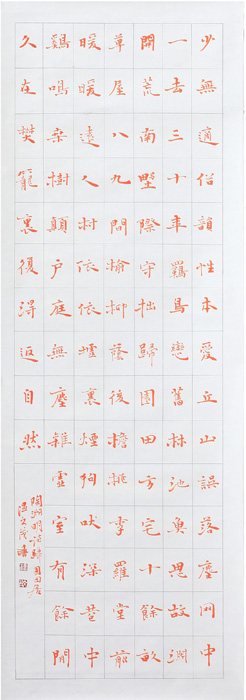 少無適俗韻性本愛丘山誤落塵网中
一去三十年羈鳥戀舊林池魚思故淵
開荒南野際守拙歸園田方宅十餘畝
草屋八九間榆柳蔭後檐桃李羅堂前
暖暖遠人村依依墟裏煙狗吠深巷中
鷄鳴桑樹顛戶庭無塵雜虛室有餘閒
久在樊籠裏復得返自然
陶淵明詩歸園田居